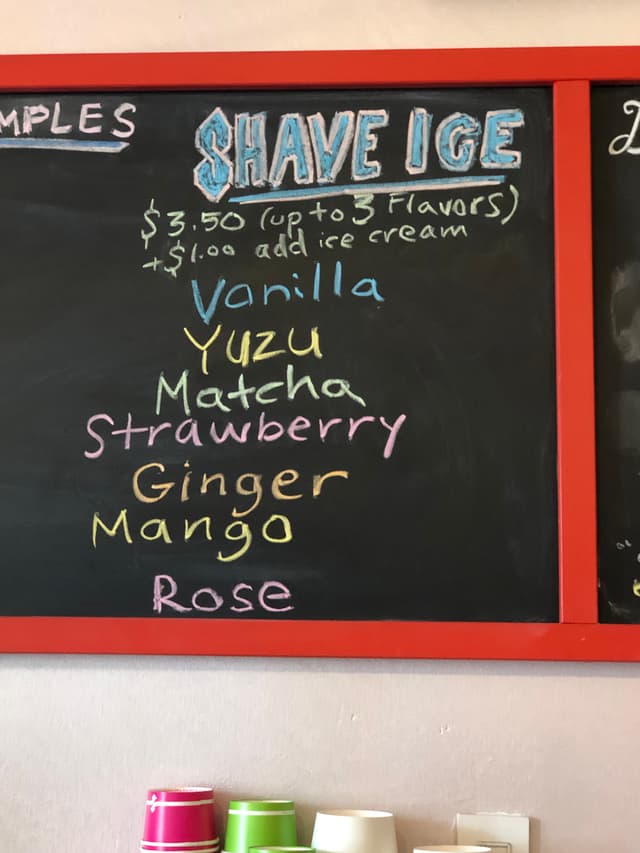 SHAVE ICE
$3.50 (up to 3 Flavors)
+$1.00 add ice cream
Vanilla
Yuzu
Matcha
Strawberry
Ginger
Mango
Rose